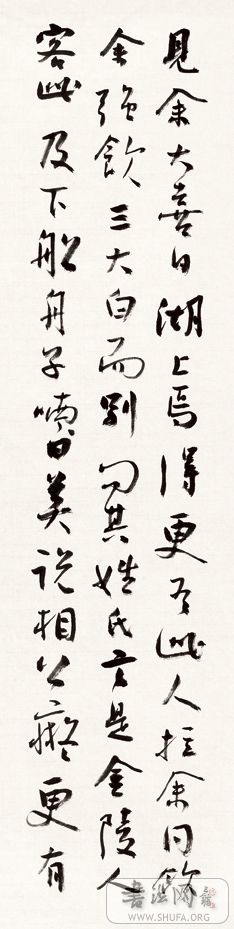 見余大喜曰湖上焉得更有此人拉余同飲
余強飲三大白而別問其姓氏言是金陵人
客此及下船舟子喃曰莫說相公癡更有
書法网
WWW.SHUFA.ORG